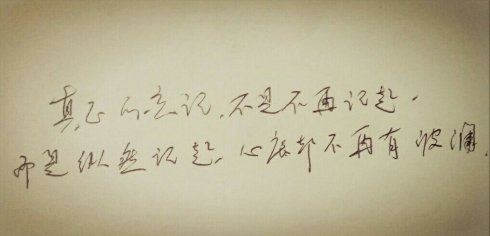 真正的忘记,不是不再记起,
而是纵然记起,心底却不再有波澜.